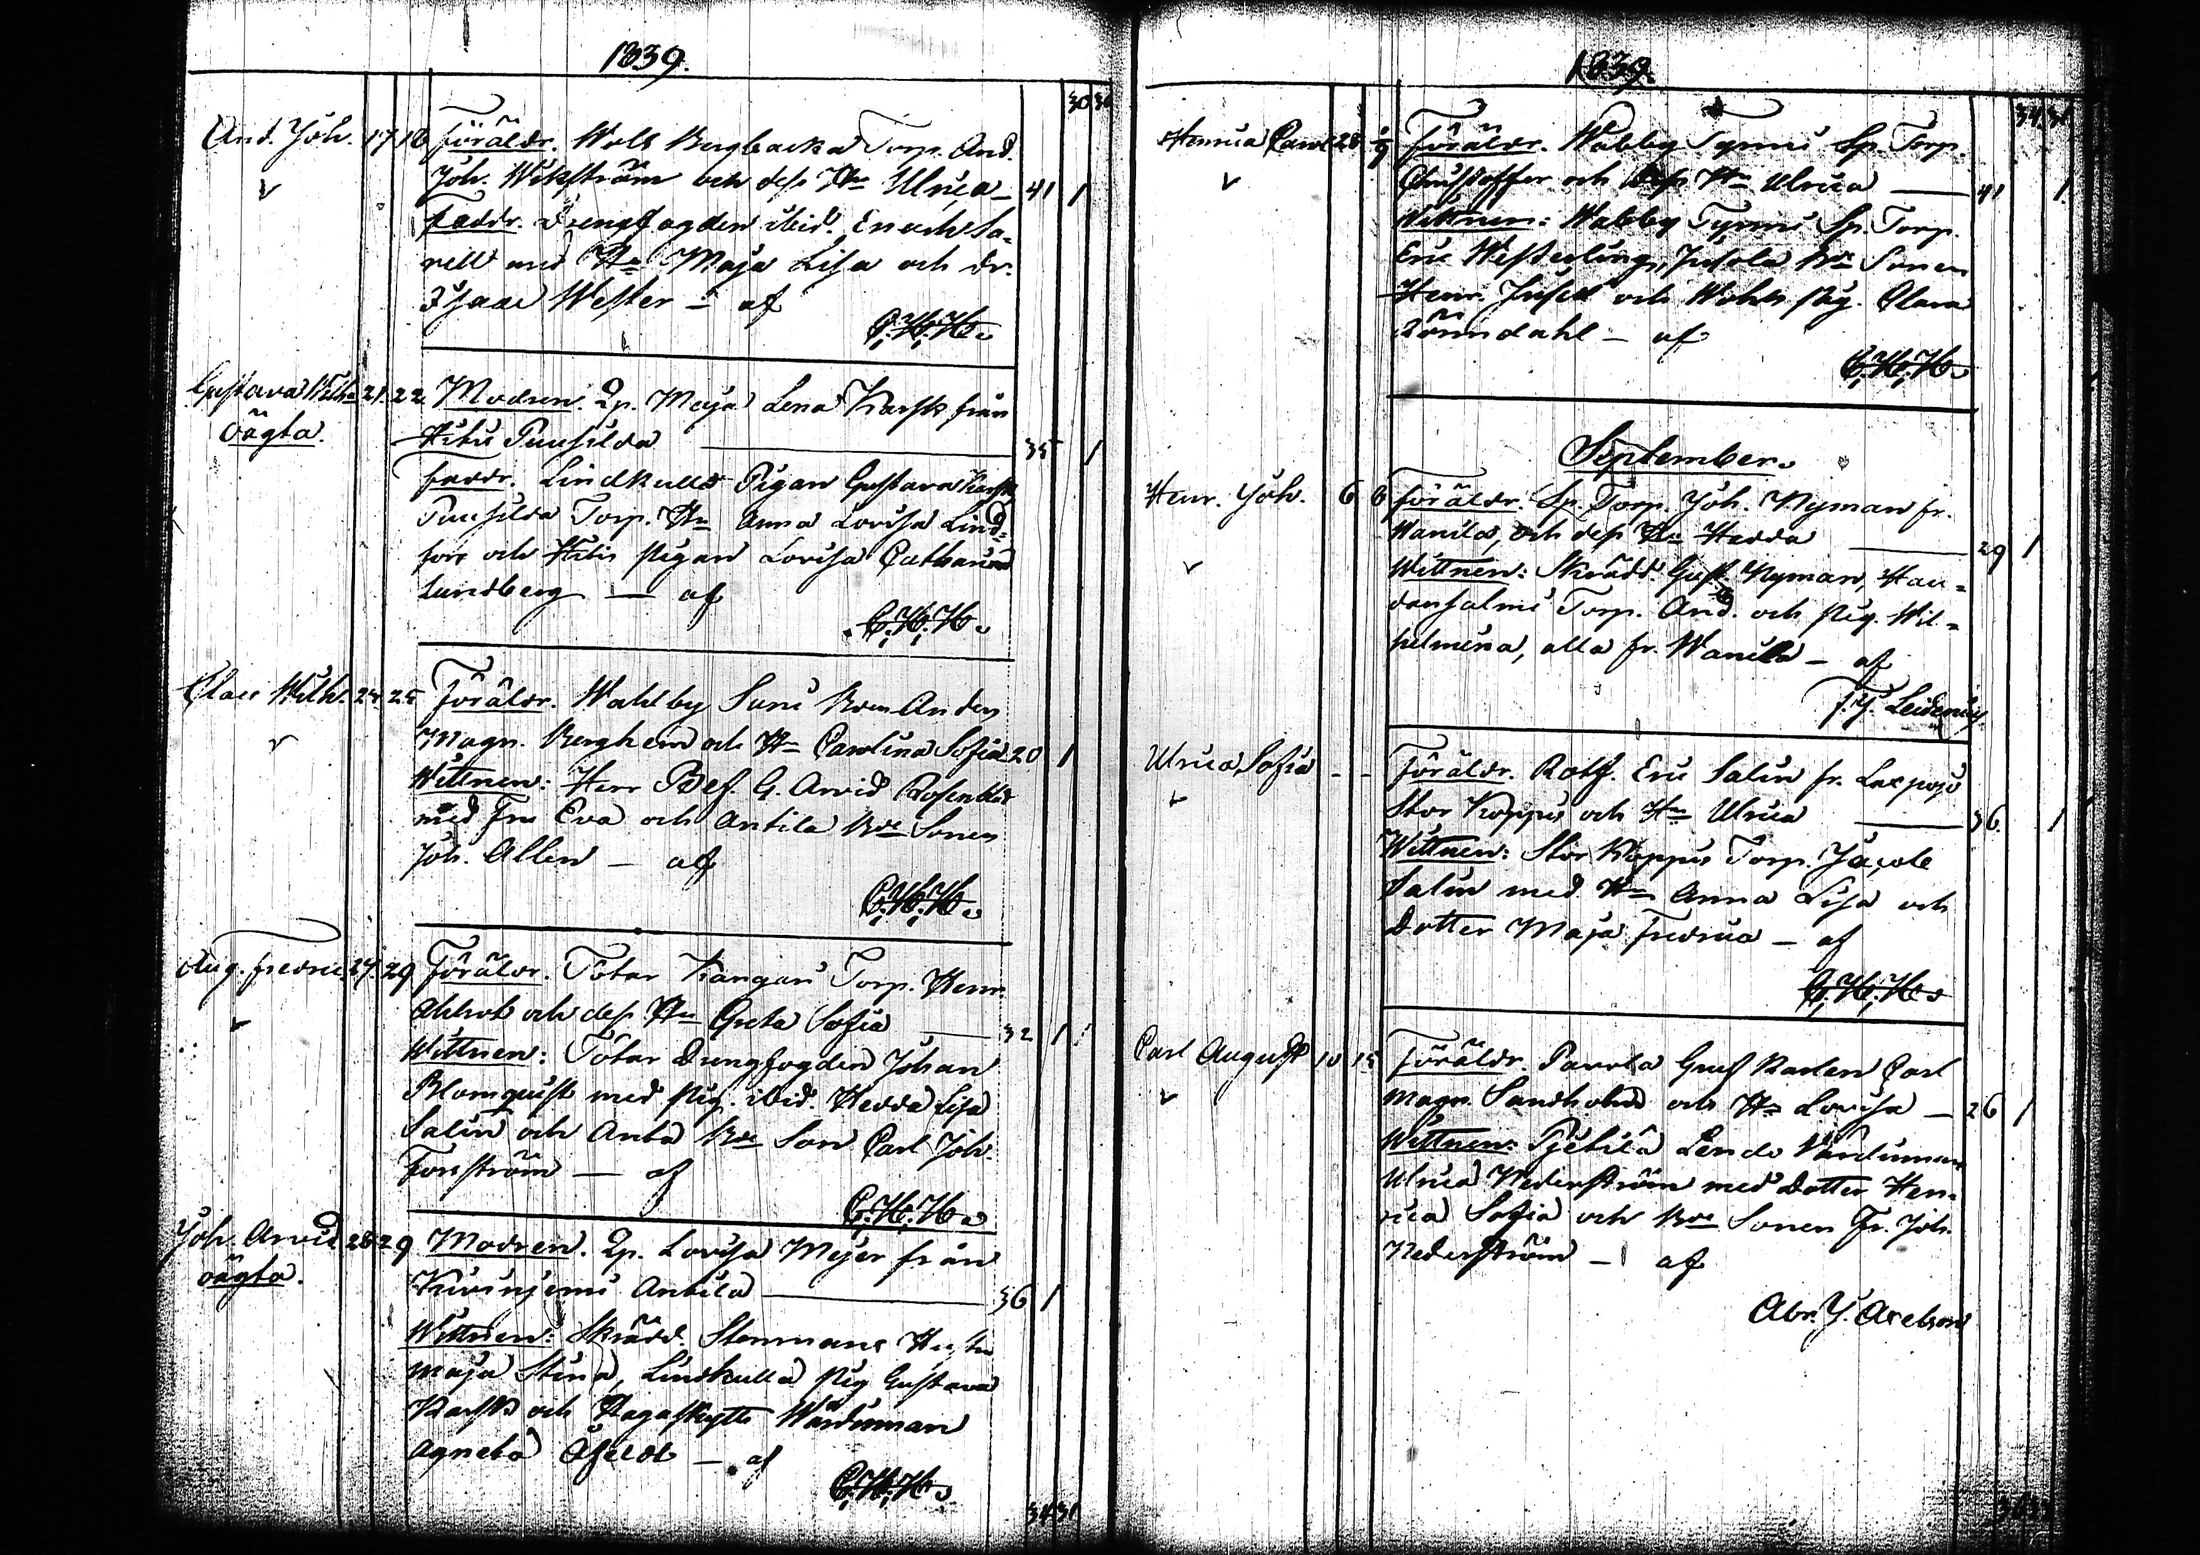 1839.
30 30
And. Joh. 17 18 Föräldr. Wols Bergbacka Torp. And.
Joh. Wikström och dess Hu Ulrica 41 1
Faddr. Drengfogden ibid. Enoch Sa-
rell med Hu Maja Lisa och dr.
Isaac Wester – af
C.H.H.
Gustava Wilha 21. 22. Modren. Qp. Maja Lena Karsk från
oägta. Hitis Puusilda 35 1
Faddr. Lindkulla Pigan Gustava Karsk
Puusilda Torp. Hu Anna Lovisa Lind-
fors och Hitis pigan Lovisa Catharina
Lundberg — af
C.H.H.
Claes Wilh. 24. 25 Föräldr. Wahlby Suni Anders
Magn. Berghem och Hu Carolina Sofia 20 1
Wittnen: Herr Bef. G. Arvid
med Fru Eva och Antila Bde Sonen
Joh. Allen – af
C.H.H.
Aug. Fredric. 27. 29 Föräldr. Tötar Kangas Torp. Henr.
och dess Hu Greta Sofia 32 1
Wittnen: Tötar Drengfogden Johan
Blomquist med pig. ibid. Hedda Lisa
Salin och Anta Bde Son Carl Joh.
Forsström — af
C.H.H.
Joh. Arvid 28 29 Modren. Qp. Lovisa Meyer från
oägta. Antila 36 1
Wittnen: Skrädd. Stenmans Hustru
Maja Stina, Lindkulla pig Gustava
Karsk och Wärdinnan
Agneta — af
C.H.H.
34 31
1839.
34 31
Henrica Carol 28 1/9 Föräldr. Wabby Tyrni Sp. Torp.
Christoffer och dess Hu Ulrica 41 1
Wittnen: Wabby Tyrni Sp. Torp.
Eric Westerling, Jusola Bde Sonen
Henr. och pig. Clara
Rönndahl – af
C.H.H.
September.
Henr. Joh. 6 8 Föräldr. Sp. Torp. Joh. Nyman fr.
Wanila, och dess Hu Hedda 29 1
Wittnen: Skrädd. Gust. Nyman, Hau-
Torp. And. och pig. Wil-
helmina, alla fr. Wanila – af
Leidenius.
Ulrica Sofia - - Föräldr. Eric Salin fr.
Stor Koppus och Hu Ulrica 36 1
Wittnen: Stor Koppus Torp. Jacob
Salin med Hu Anna Lisa och
Dotter Maja Fredrica – af
C.H.H.
Carl August 10 15 Föräldr. Pavola Carl
Magn. Sandholm och Hu Lovisa 26 1
Wittnen: Pjetilä Lendo Värdinnan
Ulrica Nederström med Dotter Hen-
rica Sofia och Bde Sonen Fr. Joh.
Nederström – af
Abr. J. Axelson